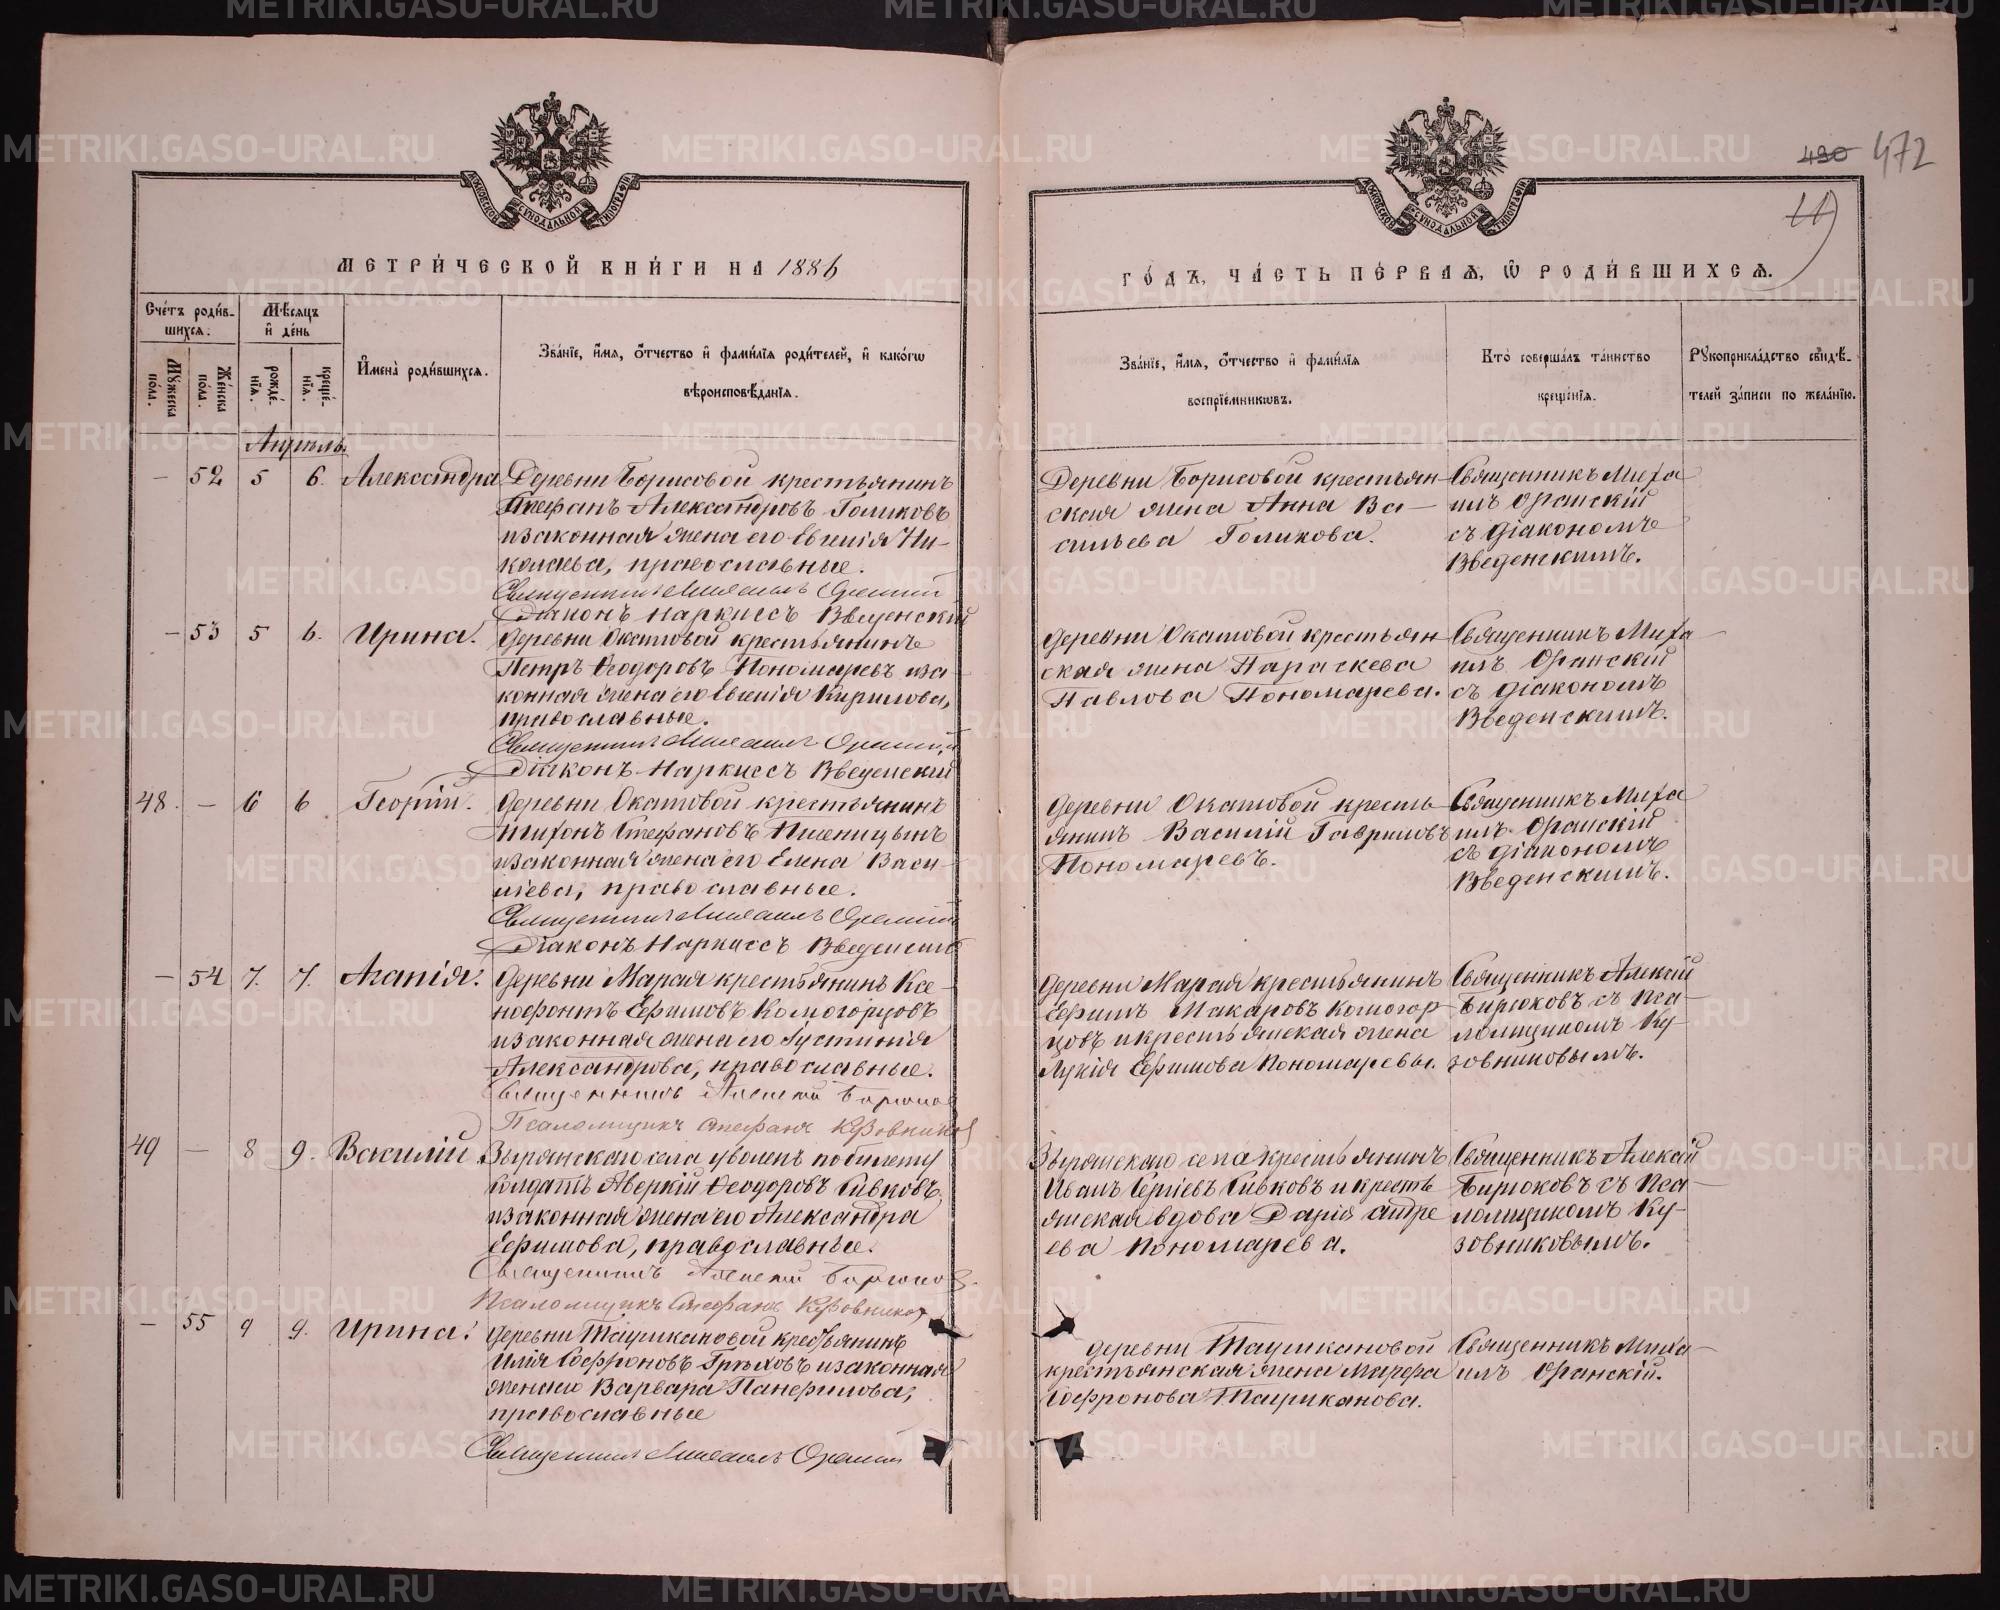 490 472
19
МЕТРИ́ЧЕСКОЙ КНИ́ГИ НА 1886
ГО́ДЪ, ЧА́СТЬ ПЕ́РВАѦ, Ѽ РОДИ́ВШИХСѦ.
Сче́тъ роди́в-
шихсѧ.
Мѣ́сѧцъ
и҆ де́нь
Мꙋжеска по́ла.
Же́нска по́ла.
рожде́нїѧ.
креще́нїѧ.
И҆мена̀ роди́вшихсѧ.
Зва́нїе, и҆́мѧ, ѻ҆́тчество и҆ фами́лїѧ роди́телей, и҆ како́гѡ
вѣроисповѣ́данїѧ.
Зва́нїе, и҆́мѧ, ѻ҆́тчество и҆ фами́лїѧ
воспрїе́мникѡвъ.
Кто̀ соверша́лъ та́инство
креще́нїѧ.
Рꙋкоприкла́дство свидѣ́-
телей за́писи по жела́нїю.
Апрѣль.
— 52 5 6. Александра
Деревни Борисовой крестьянинъ
Стефанъ Александровъ Голиковъ
и законная жена его Евгенія Ни-
колаева, православные.
Священникъ Михаилъ Оранскій
Діаконъ Наркиссъ Введенскій
Деревни Борисовой крестьян-
ская жена Анна Ва-
сильева Голикова.
Священникъ Миха-
илъ Оранскій
съ діакономъ
Введенскимъ.
— 53 5 6. Ирина.
Деревни Окатовой крестьянинъ
Петръ Ѳеодоровъ Пономаревъ и за-
конная жена его Евгенія Кирилова,
православные.
Священникъ Михаилъ Оранскій
Діаконъ Наркиссъ Введенскій
Деревни Окатовой крестьян-
ская жена Параскева
Павлова Пономарева.
Священникъ Миха-
илъ Оранскій
съ діакономъ
Введенскимъ.
48. — 6 6 Георгій.
Деревни Окатовой крестьянинъ
Тихонъ Стефановъ Пшеницынъ
и законная жена его Елена Васи-
льева, православные.
Священникъ Михаилъ Оранскій
Діаконъ Наркиссъ Введенскій
Деревни Окатовой кресть-
янинъ Василій Гавриловъ
Пономаревъ.
Священникъ Миха-
илъ Оранскій
съ діакономъ
Введенскимъ.
— 54 7. 7. Агапія.
Деревни Марая крестьянинъ Ксе-
нофонтъ Ефимовъ Комогорцовъ
и законная жена его Іустинія
Александрова, православные.
Священникъ Алексій Бирюков
Псаломщикъ Стефанъ Кузовников
Деревни Марая крестьянинъ
Ефимъ Макаровъ Комогор-
цовъ и крестьянская жена
Лукія Ефимова Пономаревы.
Священникъ Алексій
Бирюковъ съ пса-
ломщикомъ Ку-
зовниковымъ.
49 — 8 9. Василій.
Зырянскаго села уволен. по билету
солдатъ Аверкій Ѳеодоровъ Сивковъ
и законная жена его Александра
Ефимова, православные.
Священникъ Алексій Бирюков.
Псаломщикъ Стефанъ Кузовников
Зырянскаго села крестьянинъ
Иванъ Сергіевъ Сивковъ и кресть-
янская вдова Дарія Андре-
ева Пономарева.
Священникъ Алексій
Бирюковъ съ пса-
ломщикомъ Ку-
зовниковымъ.
— 55 9 9. Ирина.
Деревни Таушкановой крестьянинъ
Илія Софроновъ Грѣховъ и законная
жена его Варвара Панфилова,
православные
Священникъ Михаилъ Оранскій
Деревни Таушкановой
крестьянская жена Марфа
Софронова Таушканова.
Священникъ Миха-
илъ Оранскій.